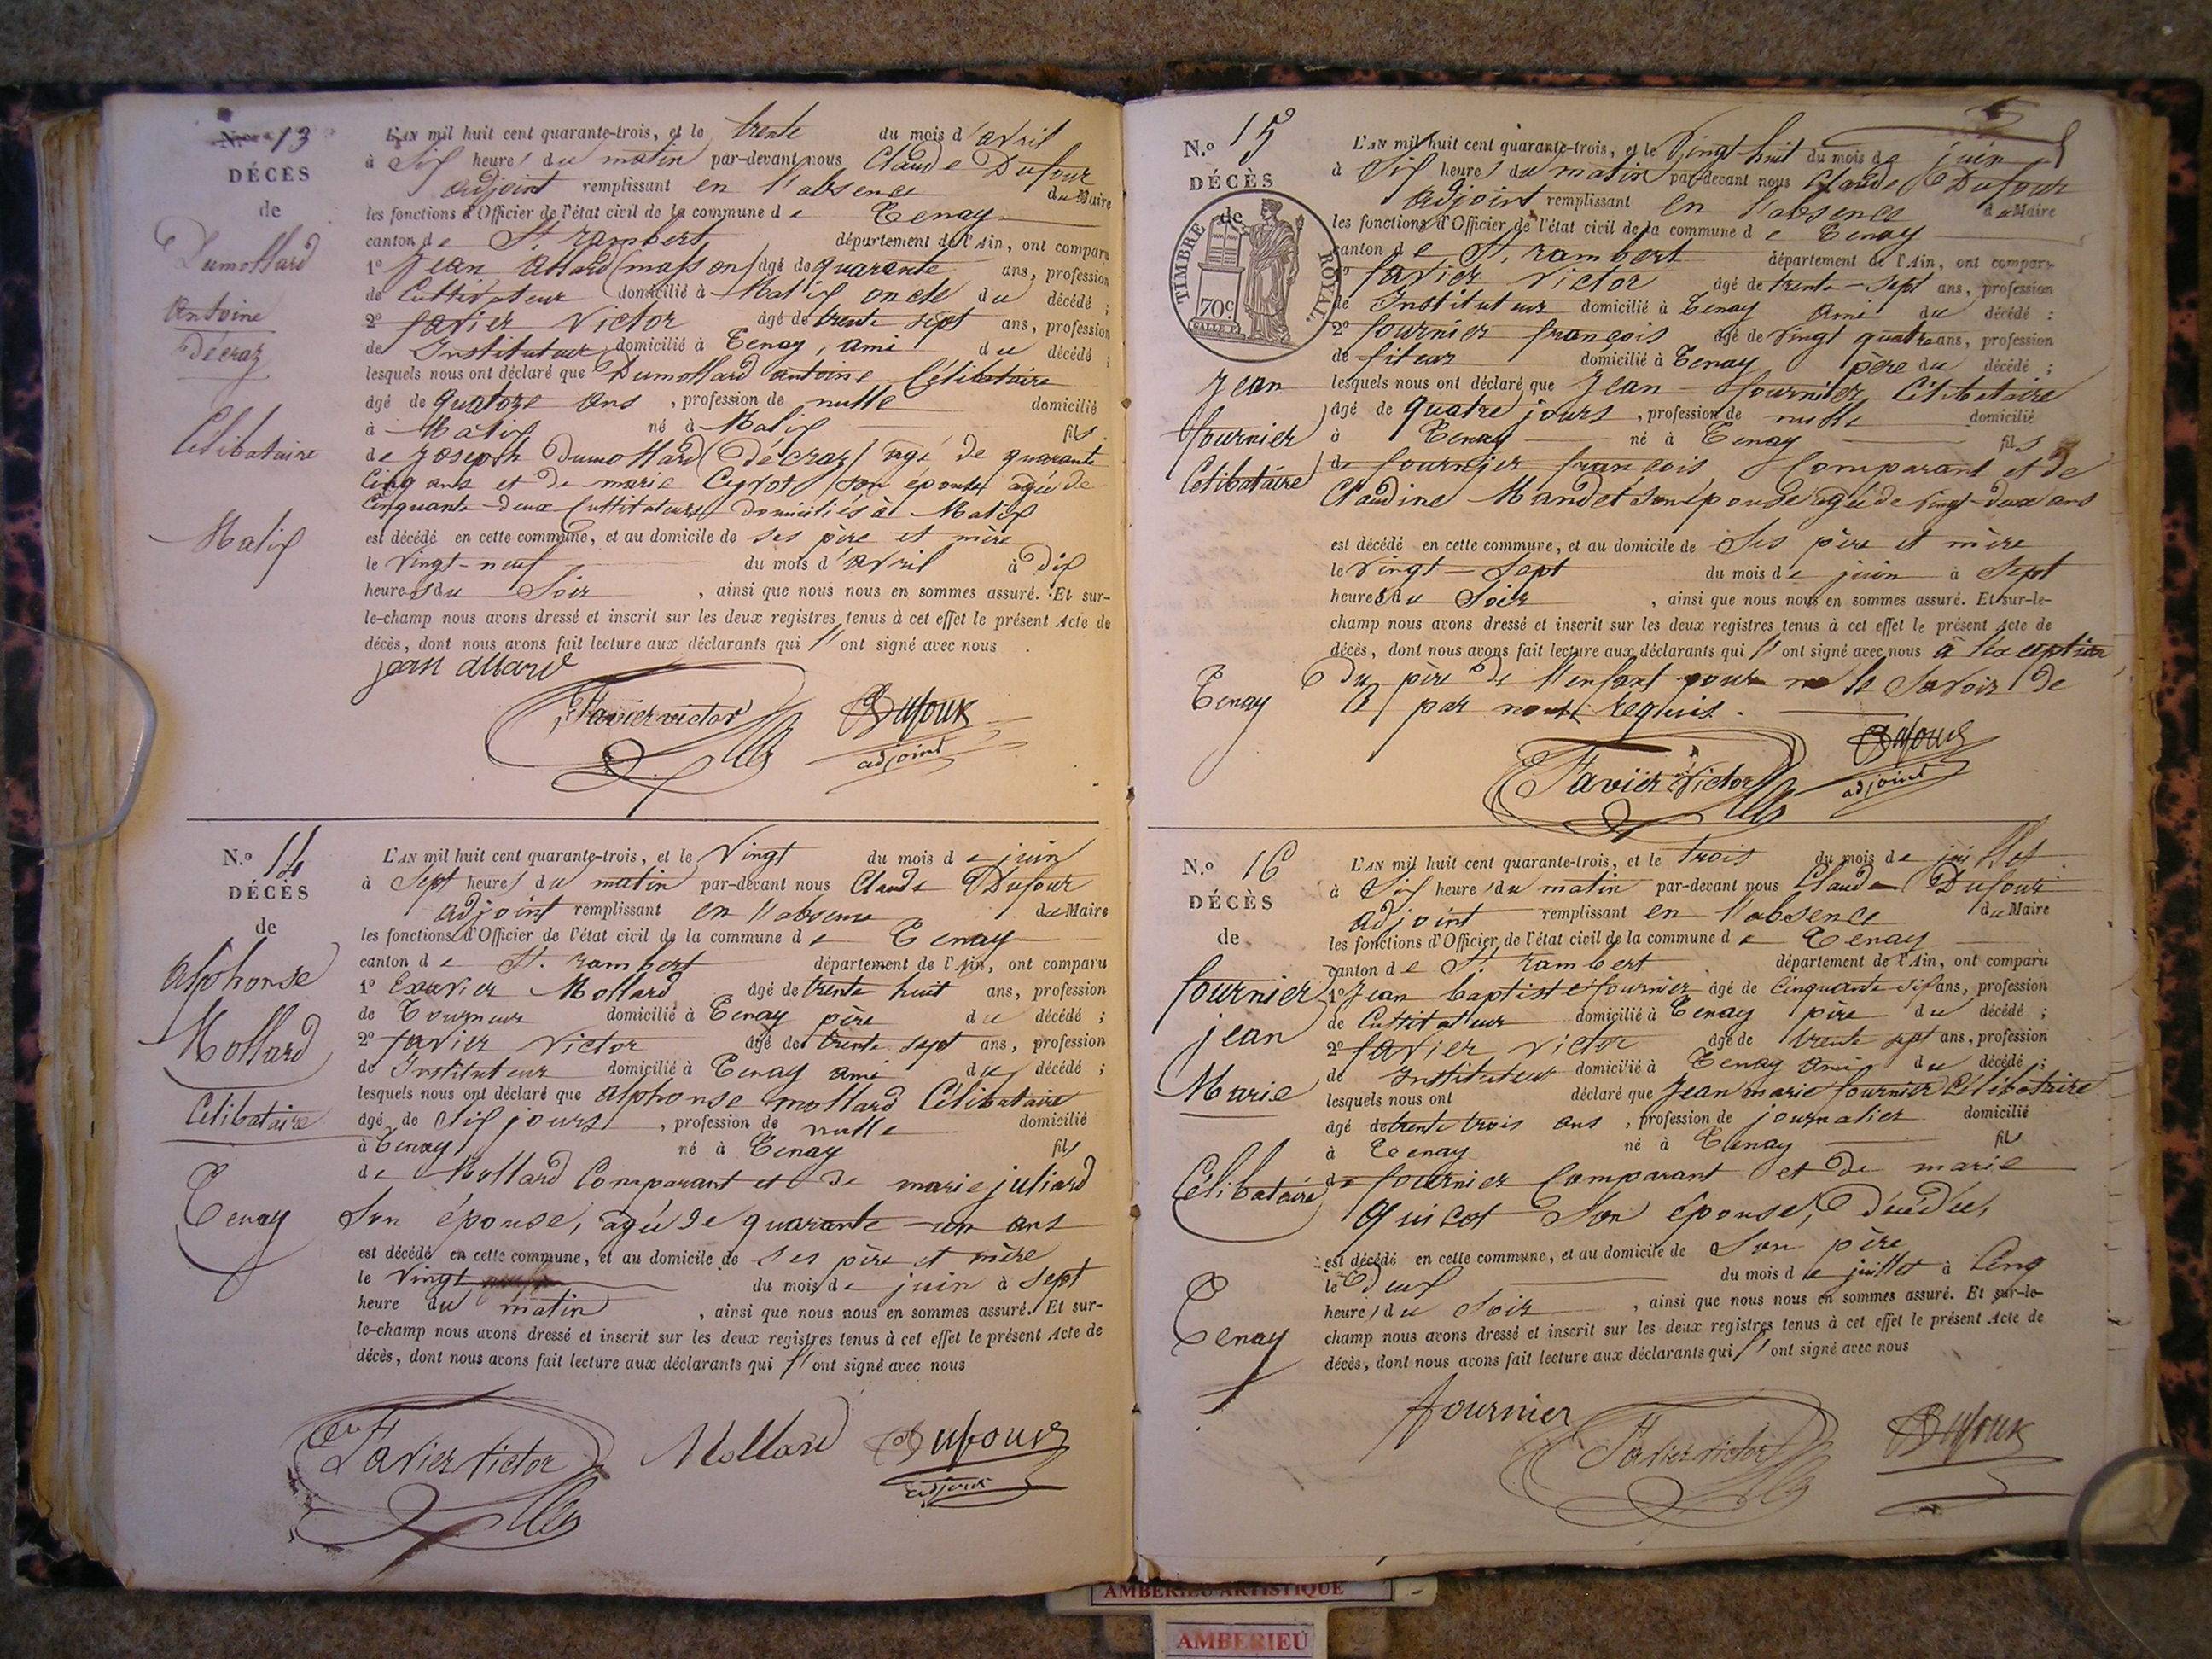 N.o 13
DÉCÈS
de
Dumollard
Antoine
Décraz
Célibataire
Malix
L'AN mil huit cent quarante-trois, et le trente du mois d'avril
à Six heures du matin par-devant nous Claude Dufour
adjoint remplissant en l'absence du Maire
les fonctions d'Officier de l'état civil de la commune de Tenay
canton de St rambert département de l'Ain, ont comparu
1o Jean Allard (masson) âgé de quarante ans, profession
de Cultivateur domicilié à Malix oncle du décédé ;
2o favier Victor âgé de trente sept ans, profession
de Instituteur domicilié à Tenay, ami du décédé ;
lesquels nous ont déclaré que Dumollard antoine Célibataire
âgé de quatoze ans, profession de nulle domicilié
à Malix né à Malix fils
de Joseph Dumollard (Décraz) agé de quarante
Cinq ans et de marie son épouse agée de
Cinquante-deux Cultivateurs Domiciliés à Malix
est décédé en cette commune, et au domicile de ses père et mère
le Vingt-neuf du mois d'avril à dix
heures du Soir, ainsi que nous nous en sommes assuré. Et sur-
le-champ nous avons dressé et inscrit sur les deux registres tenus à cet effet le présent Acte de
décès, dont nous avons fait lecture aux déclarants qui l'ont signé avec nous.
jean allard
Favier victor Dufour
adjoint
N.o 14
DÉCÈS
de
alphonse
Mollard
Célibataire
Tenay
L'AN mil huit cent quarante-trois, et le Vingt du mois de juin
à Sept heures du matin par-devant nous Claude Dufour
adjoint remplissant en l'absence du Maire
les fonctions d'Officier de l'état civil de la commune de Tenay
canton de St. rambert département de l'Ain, ont comparu
1o Exavier Mollard âgé de trente huit ans, profession
de Tourneur domicilié à Tenay père du décédé ;
2o favier Victor âgé de trente sept ans, profession
de Instituteur domicilié à Tenay ami du décédé ;
lesquels nous ont déclaré que alphonse mollard Célibataire
âgé de dix jours, profession de nulle domicilié
à Tenay né à Tenay fils
de Mollard Comparant et de marie juliard
Son épouse, agée de quarante-un ans
est décédé en cette commune, et au domicile de ses père et mère
le Vingt du mois de juin à sept
heure du matin, ainsi que nous nous en sommes assuré. Et sur-
le-champ nous avons dressé et inscrit sur les deux registres tenus à cet effet le présent Acte de
décès, dont nous avons fait lecture aux déclarants qui l'ont signé avec nous
Favier Victor Mollard Dufour
adjoint
N.o 15
DÉCÈS
de
TIMBRE ROYAL.
70c
Jean
fournier
Célibataire
Tenay
L'AN mil huit cent quarante-trois, et le Vingt-huit du mois de juin
à Six heures du matin par-devant nous Claude Dufour
adjoint remplissant en l'absence du Maire
les fonctions d'Officier de l'état civil de la commune de Tenay
canton de St. rambert département de l'Ain, ont comparu
1o favier Victor âgé de trente-sept ans, profession
de Instituteur domicilié à Tenay ami du décédé ;
2o fournier françois âgé de Vingt quatre ans, profession
de domicilié à Tenay père du décédé ;
lesquels nous ont déclaré que Jean fournier Célibataire
âgé de quatre jours, profession de nulle domicilié
à Tenay né à Tenay fils
de fournier françois Comparant et de
Claudine Mandet son épouse agée de Vingt-deux ans
est décédé en cette commune, et au domicile de Ses père et mère
le Vingt-Sept du mois de juin à Sept
heures du Soir, ainsi que nous nous en sommes assuré. Et sur-le-
champ nous avons dressé et inscrit sur les deux registres tenus à cet effet le présent Acte de
décès, dont nous avons fait lecture aux déclarants qui l'ont signé avec nous à l'exception
du père de l'enfant pour ne le Savoir de
par nous requis.
Favier Victor Dufour
adjoint
N.o 16
DÉCÈS
de
fournier
jean
Marie
Célibataire
Tenay
L'AN mil huit cent quarante-trois, et le trois du mois de juillet
à Six heures du matin par-devant nous Claude Dufour
adjoint remplissant en l'absence du Maire
les fonctions d'Officier de l'état civil de la commune de Tenay
canton de St rambert département de l'Ain, ont comparu
1o Jean baptiste fournier âgé de Cinquante Six ans, profession
de Cultivateur domicilié à Tenay père du décédé ;
2o favier Victor âgé de trente sept ans, profession
de Instituteur domicilié à Tenay ami du décédé ;
lesquels nous ont déclaré que Jean marie fournier Célibataire
âgé de trente trois ans, profession de journalier domicilié
à Tenay né à Tenay fils
de fournier Comparant et de marie
quicot Son épouse, Décédée,
est décédé en cette commune, et au domicile de Son père
le Deux du mois de juillet à Cinq
heures du Soir, ainsi que nous nous en sommes assuré. Et sur-le-
champ nous avons dressé et inscrit sur les deux registres tenus à cet effet le présent Acte de
décès, dont nous avons fait lecture aux déclarants qui l'ont signé avec nous
fournier
Favier victor Dufour
AMBERIEU ARTISTIQUE
AMBERIEU